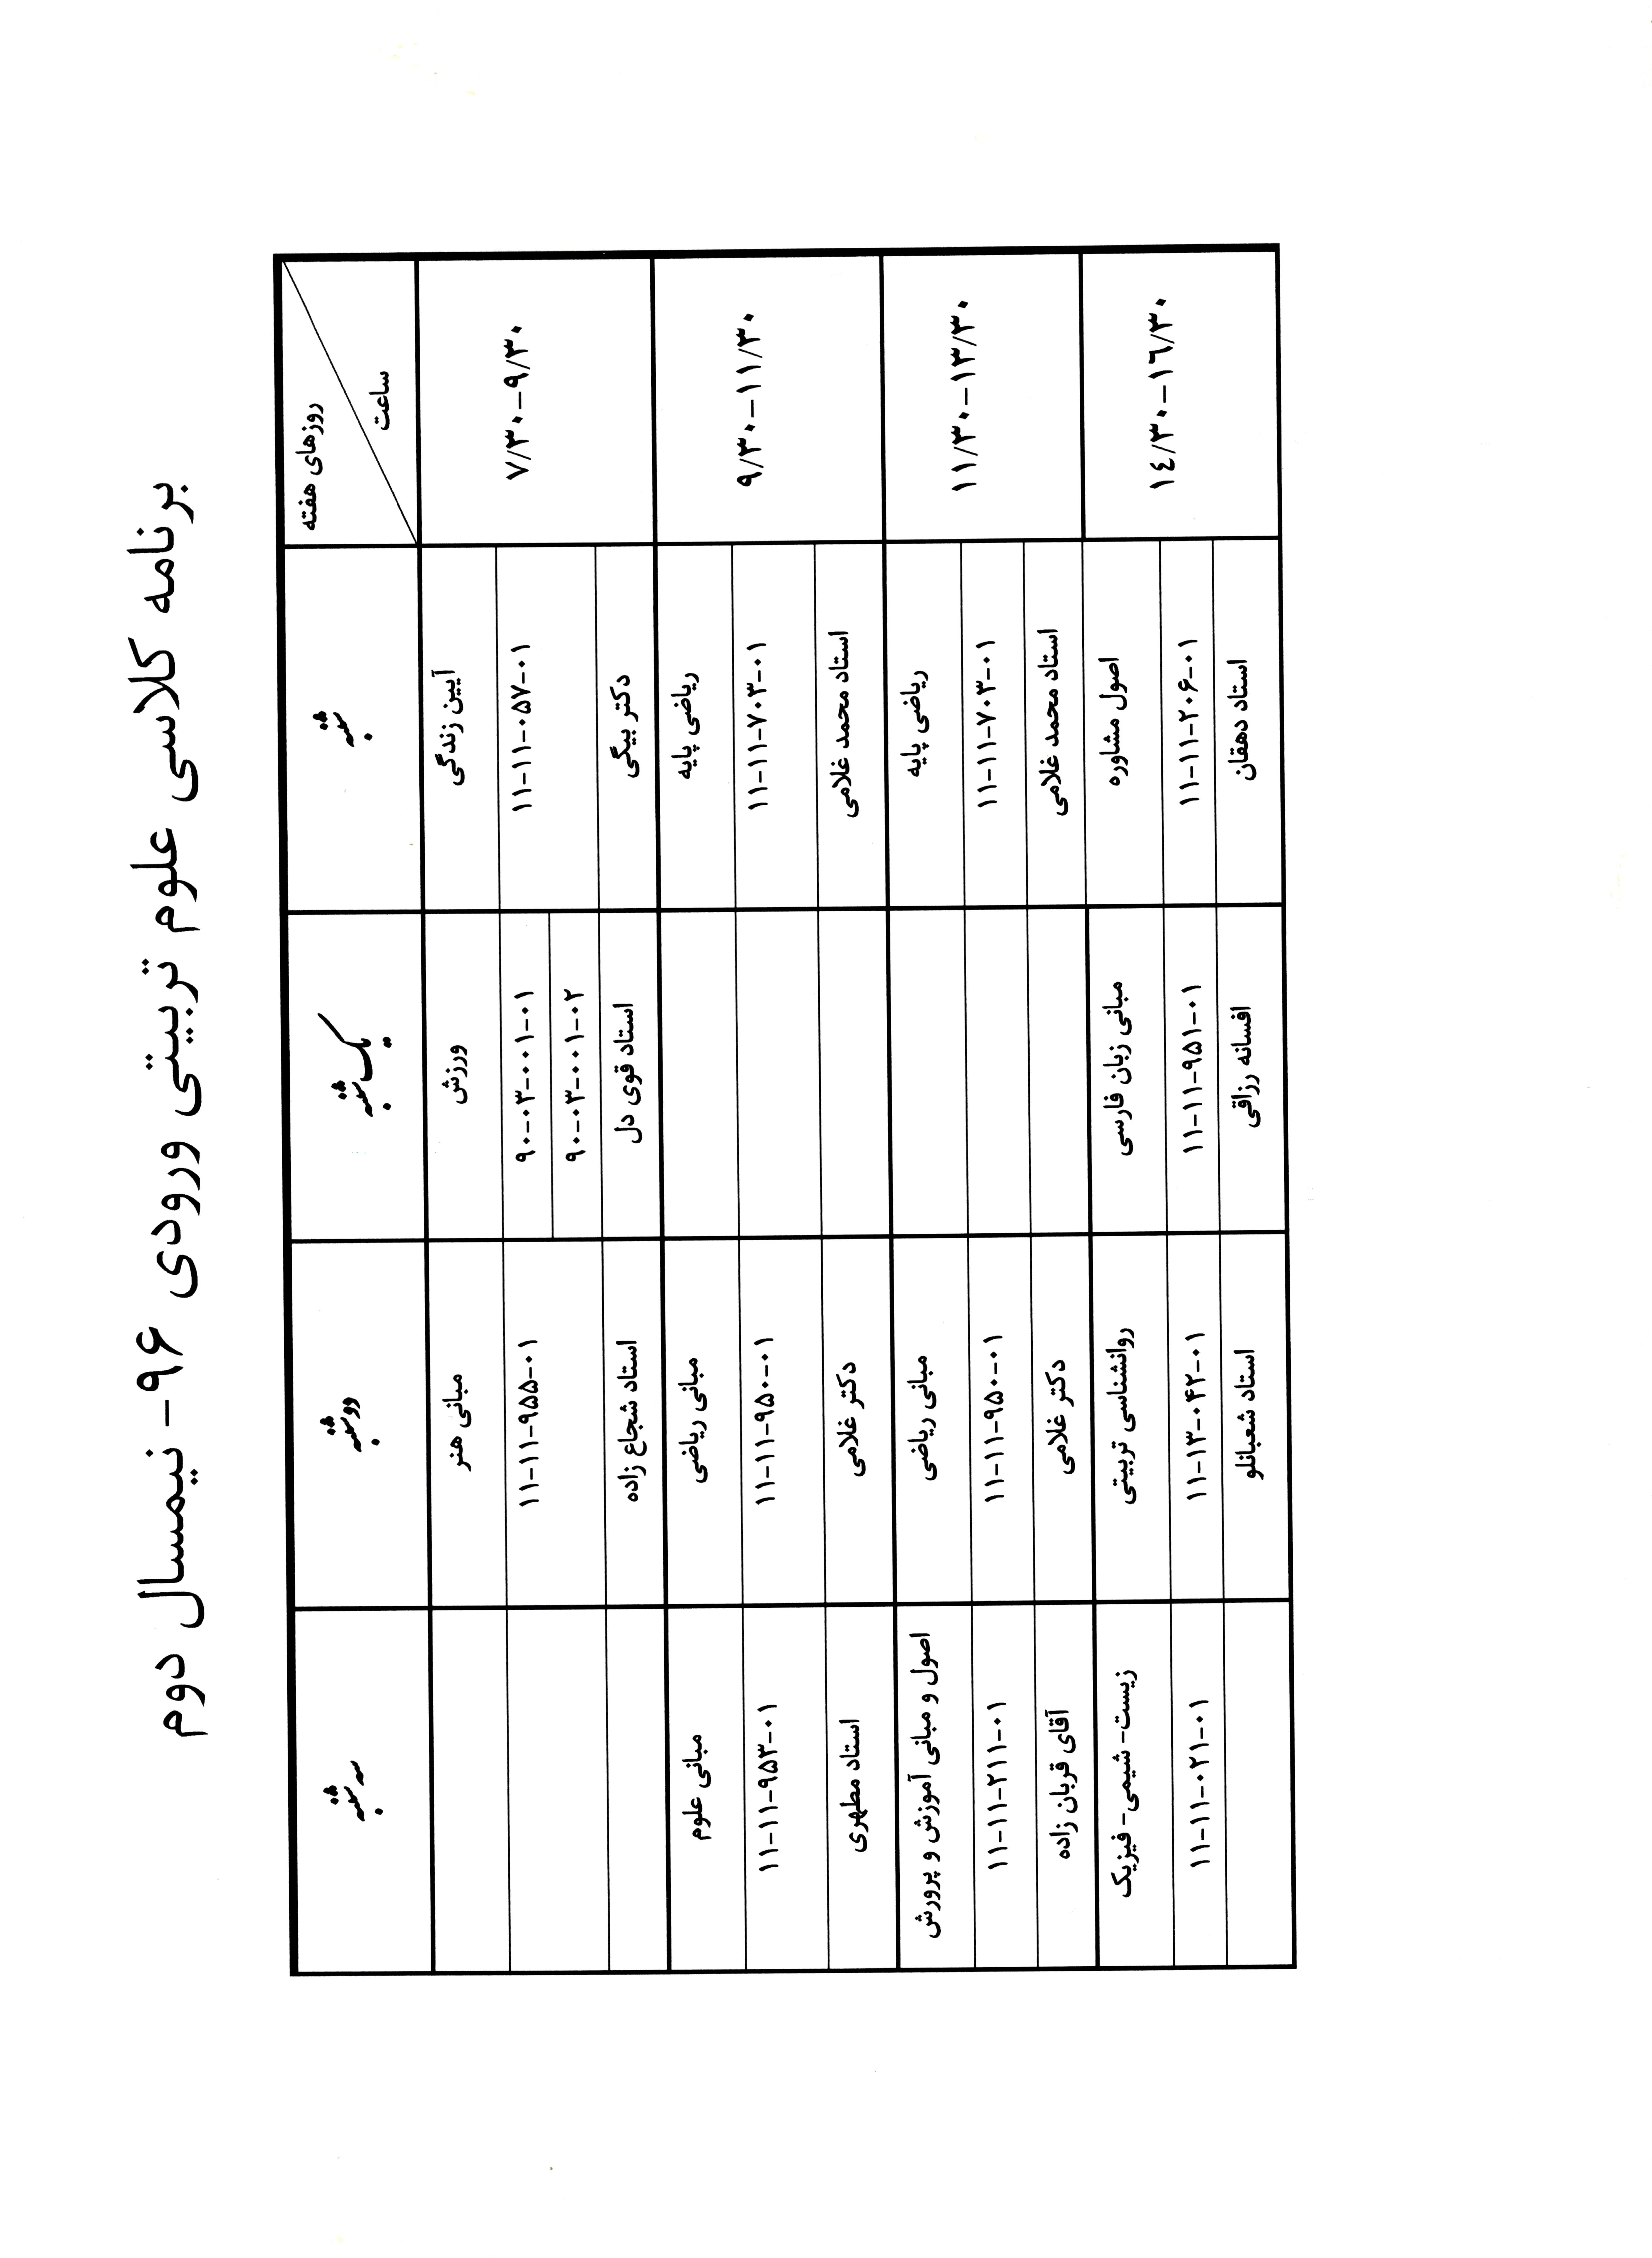 برنامه کلاسی علوم تربیتی ورودی ۹۶- نیمسال دوم
روزهای هفته
ساعت
شنبه
یک شنبه
دوشنبه
سه شنبه
۷/۳۰-۹/۳۰
آیین زندگی
ورزش
مبانی هنر
۱۱-۱۱-۰۵۷-۰۱
۹۰-۰۳-۰۰۱-۰۱
۱۱-۱۱-۹۵۵-۰۱
۹۰-۰۳-۰۰۱-۰۲
دکتر بیگی
استاد قوی دل
استاد شجاع زاده
۹/۳۰-۱۱/۳۰
ریاضی پایه
مبانی ریاضی
مبانی علوم
۱۱-۱۱-۷۰۳-۰۱
۱۱-۱۱-۹۵۰-۰۱
۱۱-۱۱-۹۵۳-۰۱
استاد محمد غلامی
دکتر غلامی
استاد مطهری
۱۱/۳۰-۱۳/۳۰
ریاضی پایه
مبانی ریاضی
اصول و مبانی آموزش و پرورش
۱۱-۱۱-۷۰۳-۰۱
۱۱-۱۱-۹۵۰-۰۱
۱۱-۱۱-۲۱۱-۰۱
استاد محمد غلامی
دکتر غلامی
آقای قربان زاده
۱٤/۳۰-۱٦/۳۰
اصول مشاوره
مبانی زبان فارسی
روانشناسی تربیتی
زیست- شیمی- فیزیک
۱۱-۱۱-۲۰۶-۰۱
۱۱-۱۱-۹۵۱-۰۱
۱۱-۱۳-۰۴۲-۰۱
۱۱-۱۱-۰۲۱-۰۱
استاد دهقان
افسانه رزاقی
استاد شعبانلو